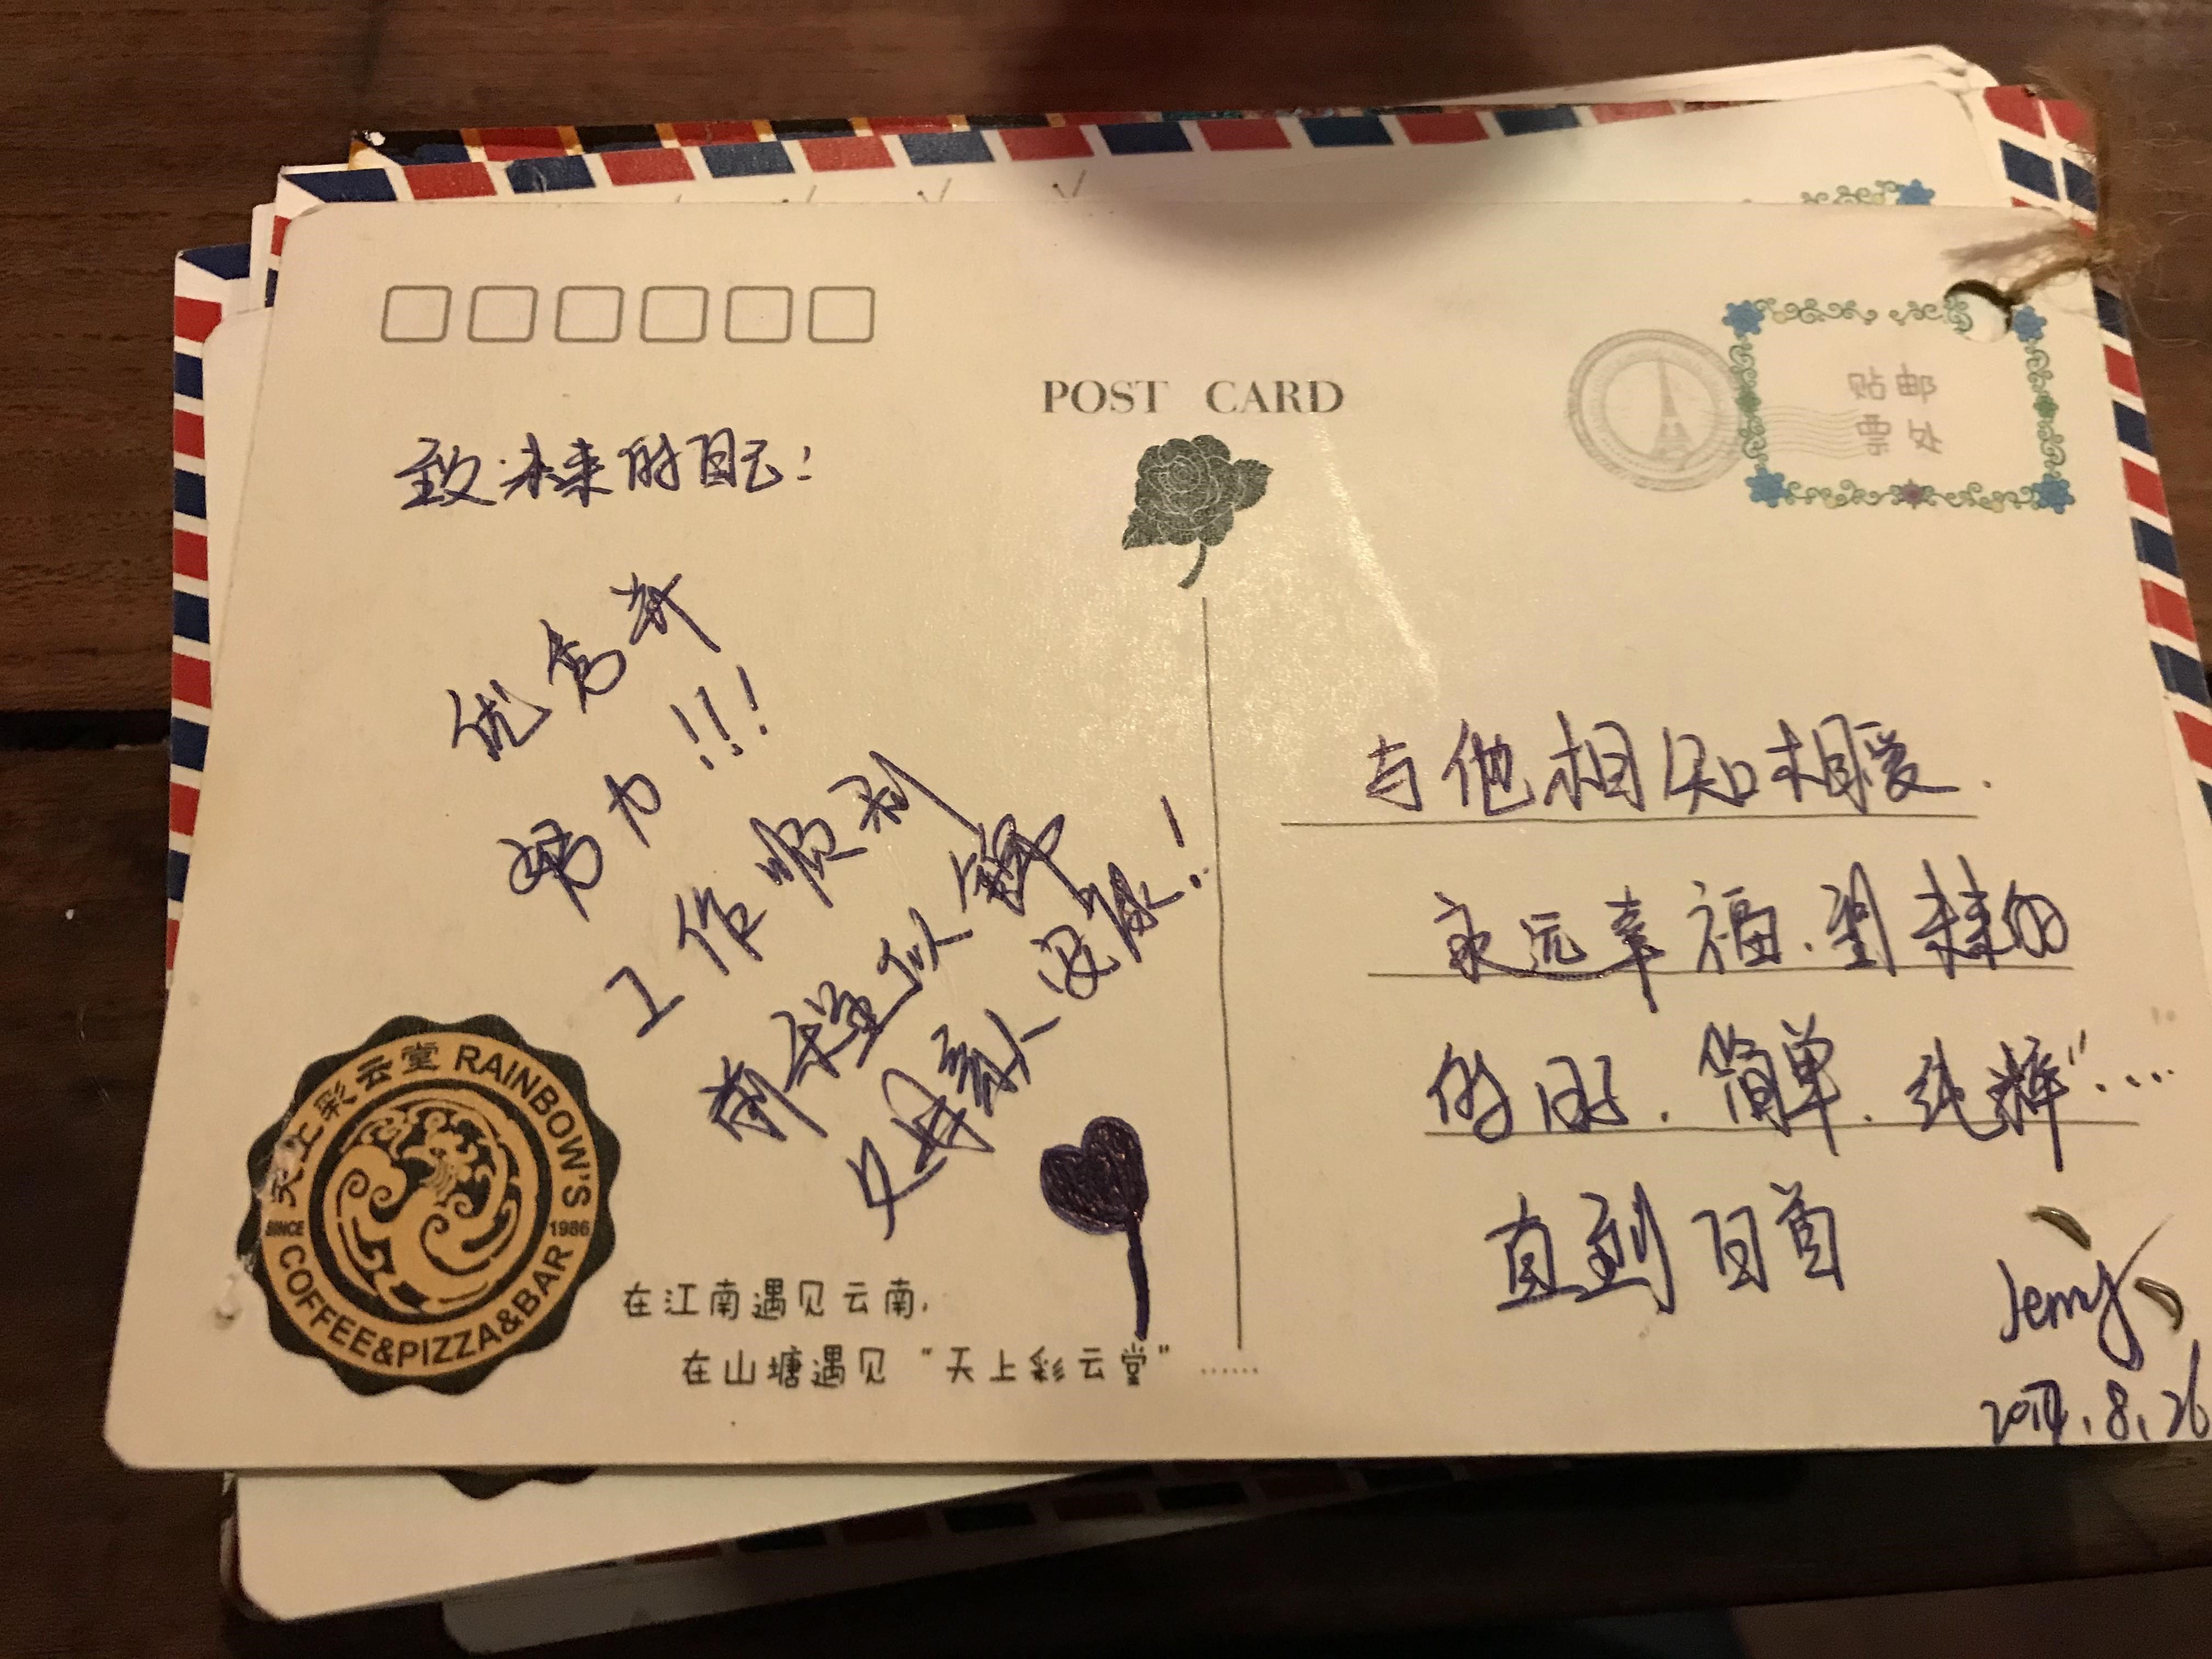 POST CARD
贴邮
票处
致未来的自己:
优秀并
努力!!!
工作顺利
前程似锦
父母亲人安康!
与他相知相爱.
永远幸福.到未来的
的日子.简单.纯粹"....
直到白首
Jenny
8.26
天上彩云堂 RAINBOW'S
SINCE 1986
COFFEE&PIZZA&BAR
在江南遇见云南,
在山塘遇见“天上彩云堂”......